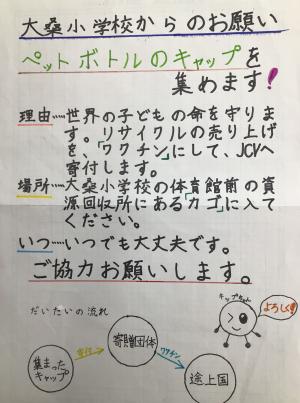 大桑小学校からのお願い
ペットボトルのキャップを
集めます!
理由‥‥世界の子どもの命を守りま
す。リサイクルの売り上げ
を、「ワクチン」にして、JCVへ
寄付します。
場所‥‥大桑小学校の体育館前の資
源回収所にある「カゴ」に入て
ください。
いつ‥‥いつでも大丈夫です。
ご協力お願いします。
だいたいの流れ
キャップちゃん
よろしくね!
集まった
キャップ
寄付
寄贈団体
ワクチン
途上国